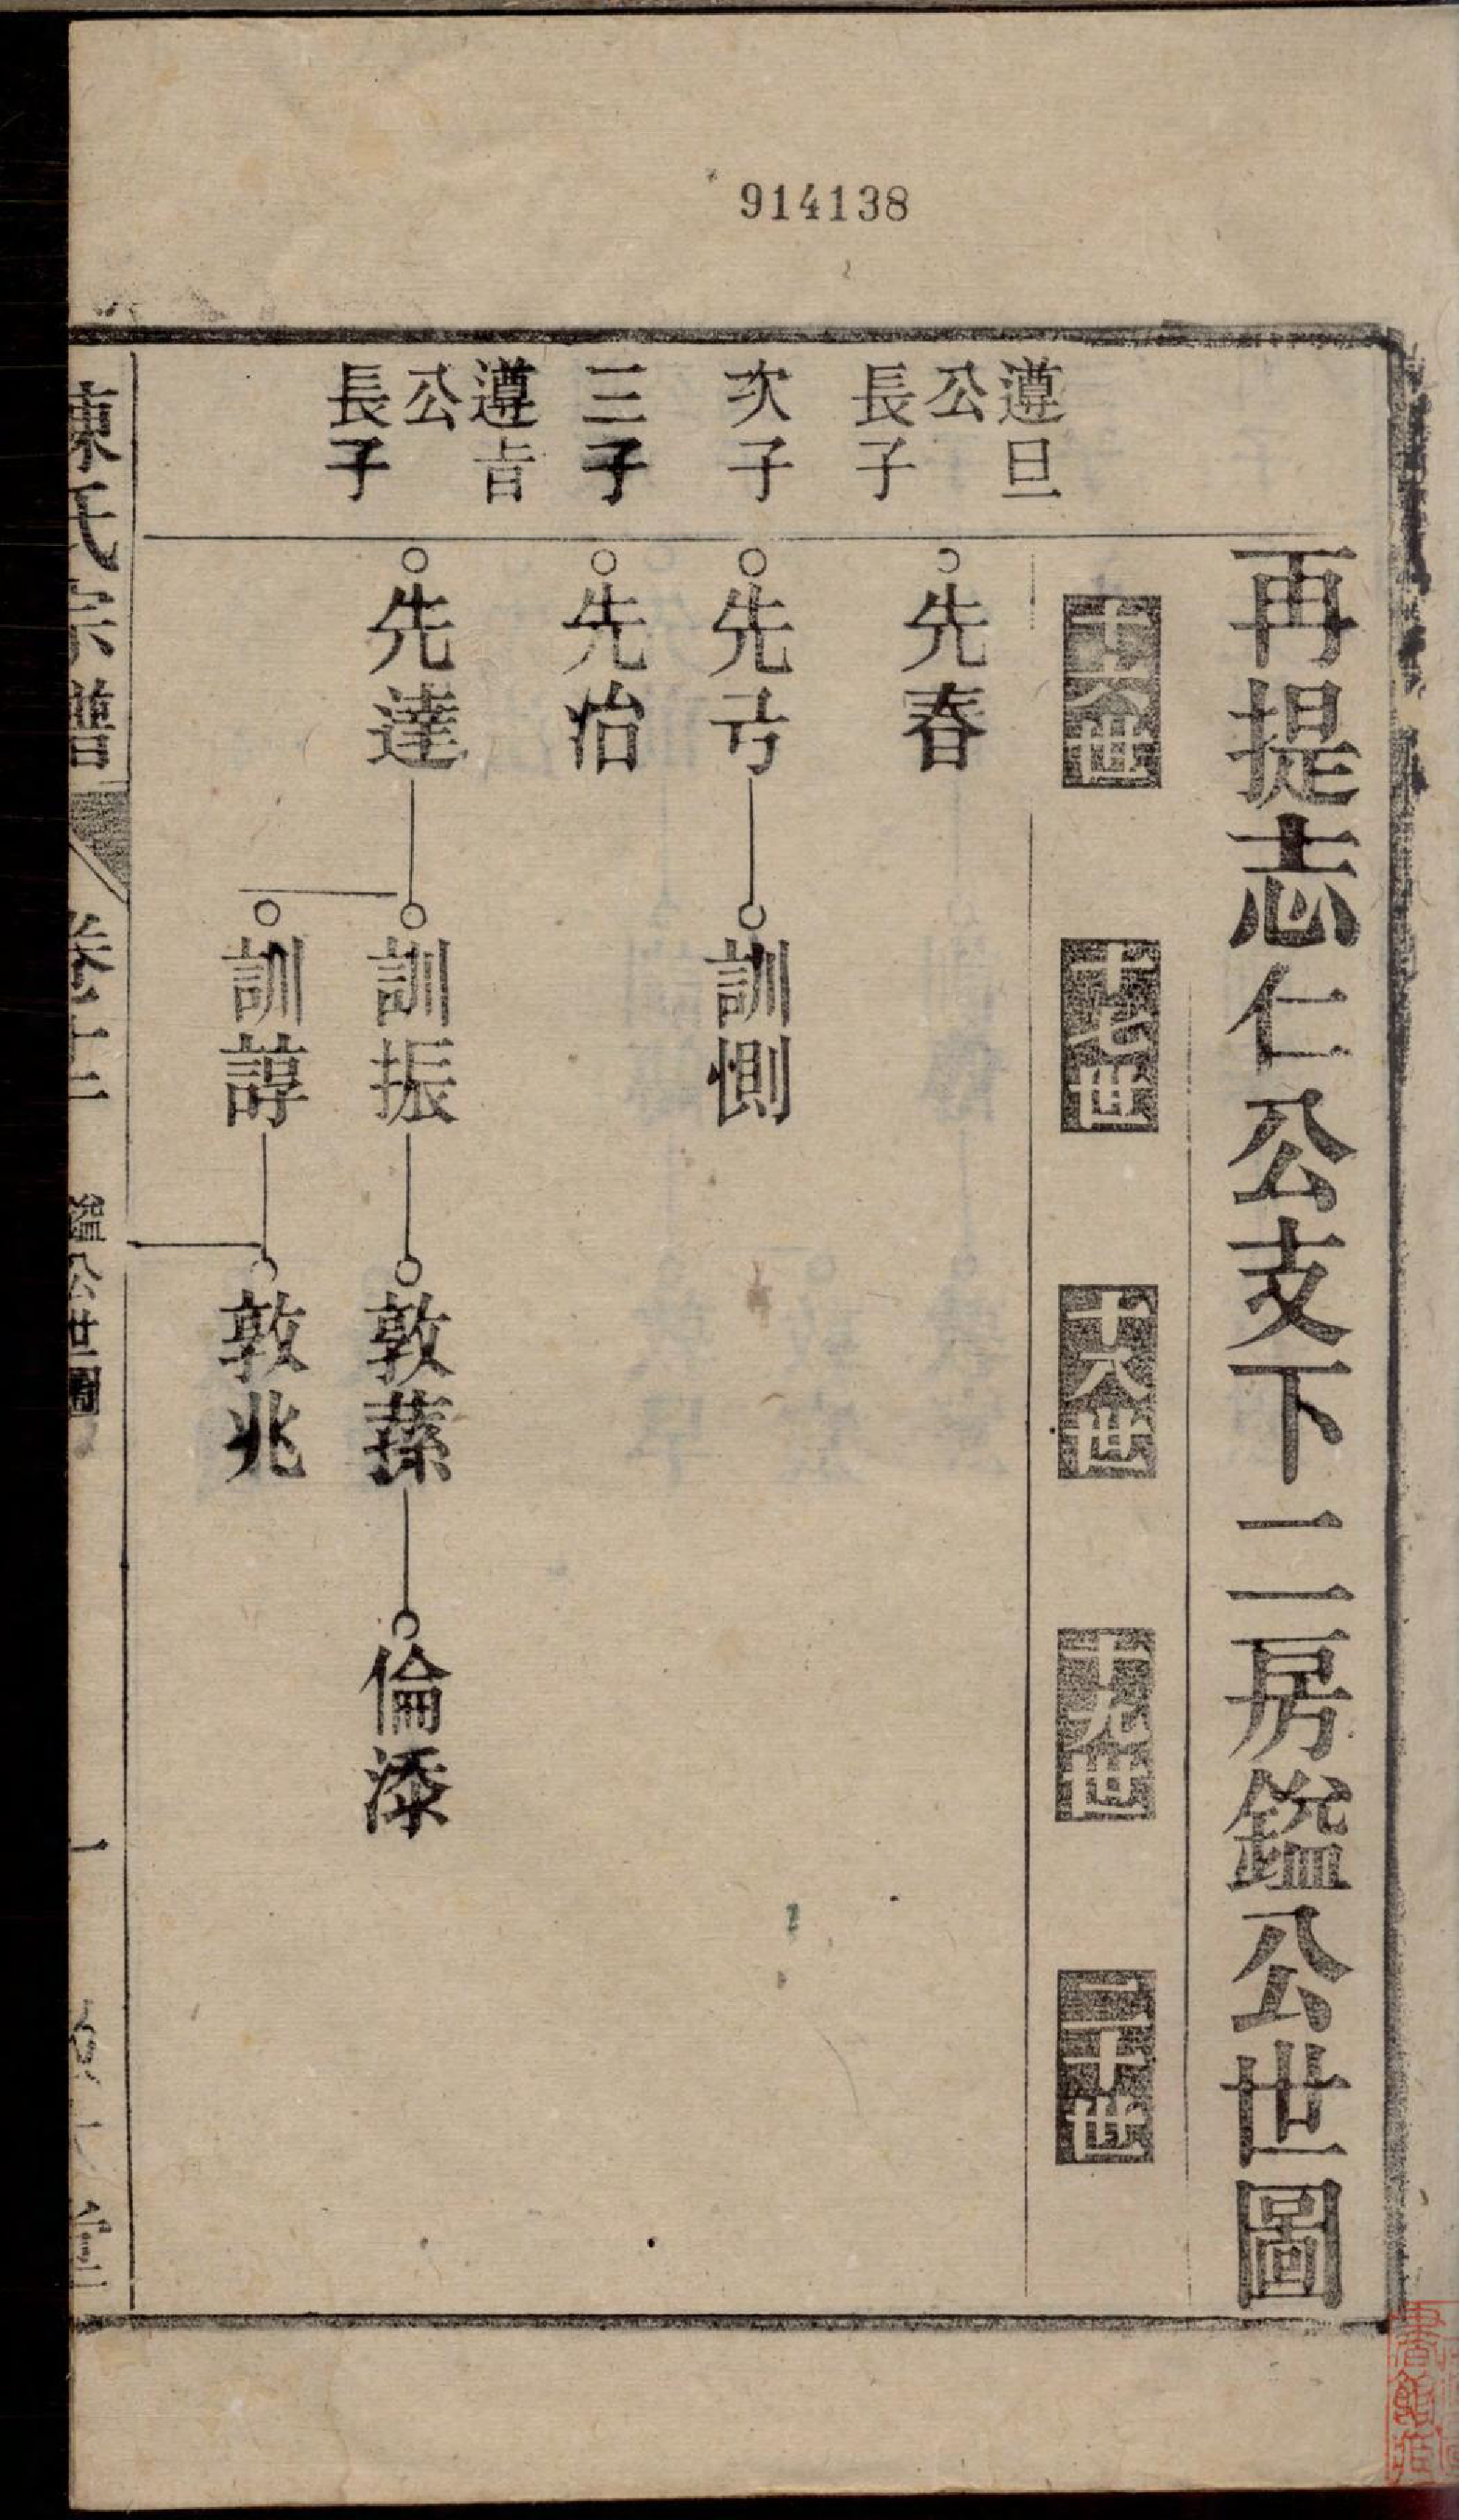 914138
再提志仁公支下二房鑑公世圖
十六世
十七世
十八世
十九世
二十世
遵旦
公
長子
先春
次子
先兮
訓惻
三子
先治
遵㫖
公
長子
先達
訓振
敦蓀
倫漆
訓諄
敦兆
陳氏宗譜
卷十二
鑑公世圖
一